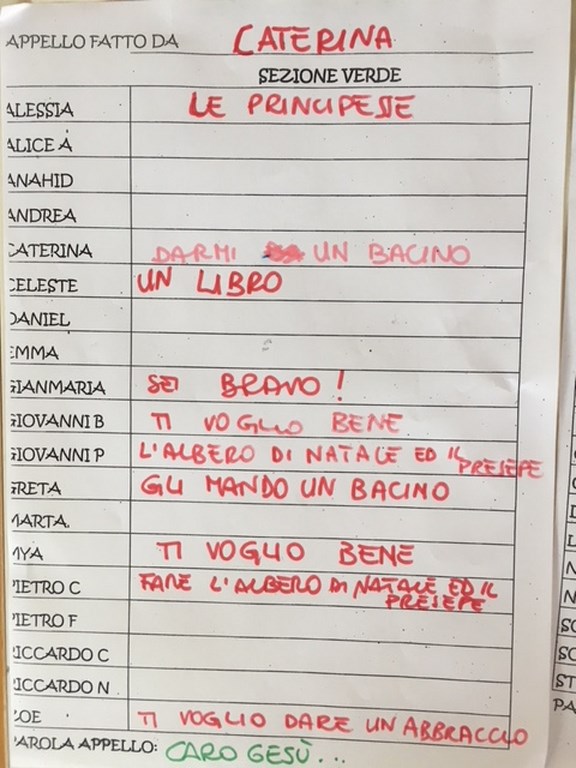 APPELLO FATTO DA CATERINA
SEZIONE VERDE
ALESSIA LE PRINCIPESSE
ALICE A
ANAHID
ANDREA
CATERINA DARMI UN BACINO
CELESTE UN LIBRO
DANIEL
EMMA
GIANMARIA SEI BRAVO!
GIOVANNI B TI VOGLIO BENE
GIOVANNI P L'ALBERO DI NATALE ED IL PRESEPE
GRETA GLI MANDO UN BACINO
MARTA.
MYA TI VOGLIO BENE
PIETRO C FARE L'ALBERO DI NATALE ED IL PRESEPE
PIETRO F
RICCARDO C
RICCARDO N
ZOE TI VOGLIO DARE UN ABBRACCIO
PAROLA APPELLO: CARO GESÙ...